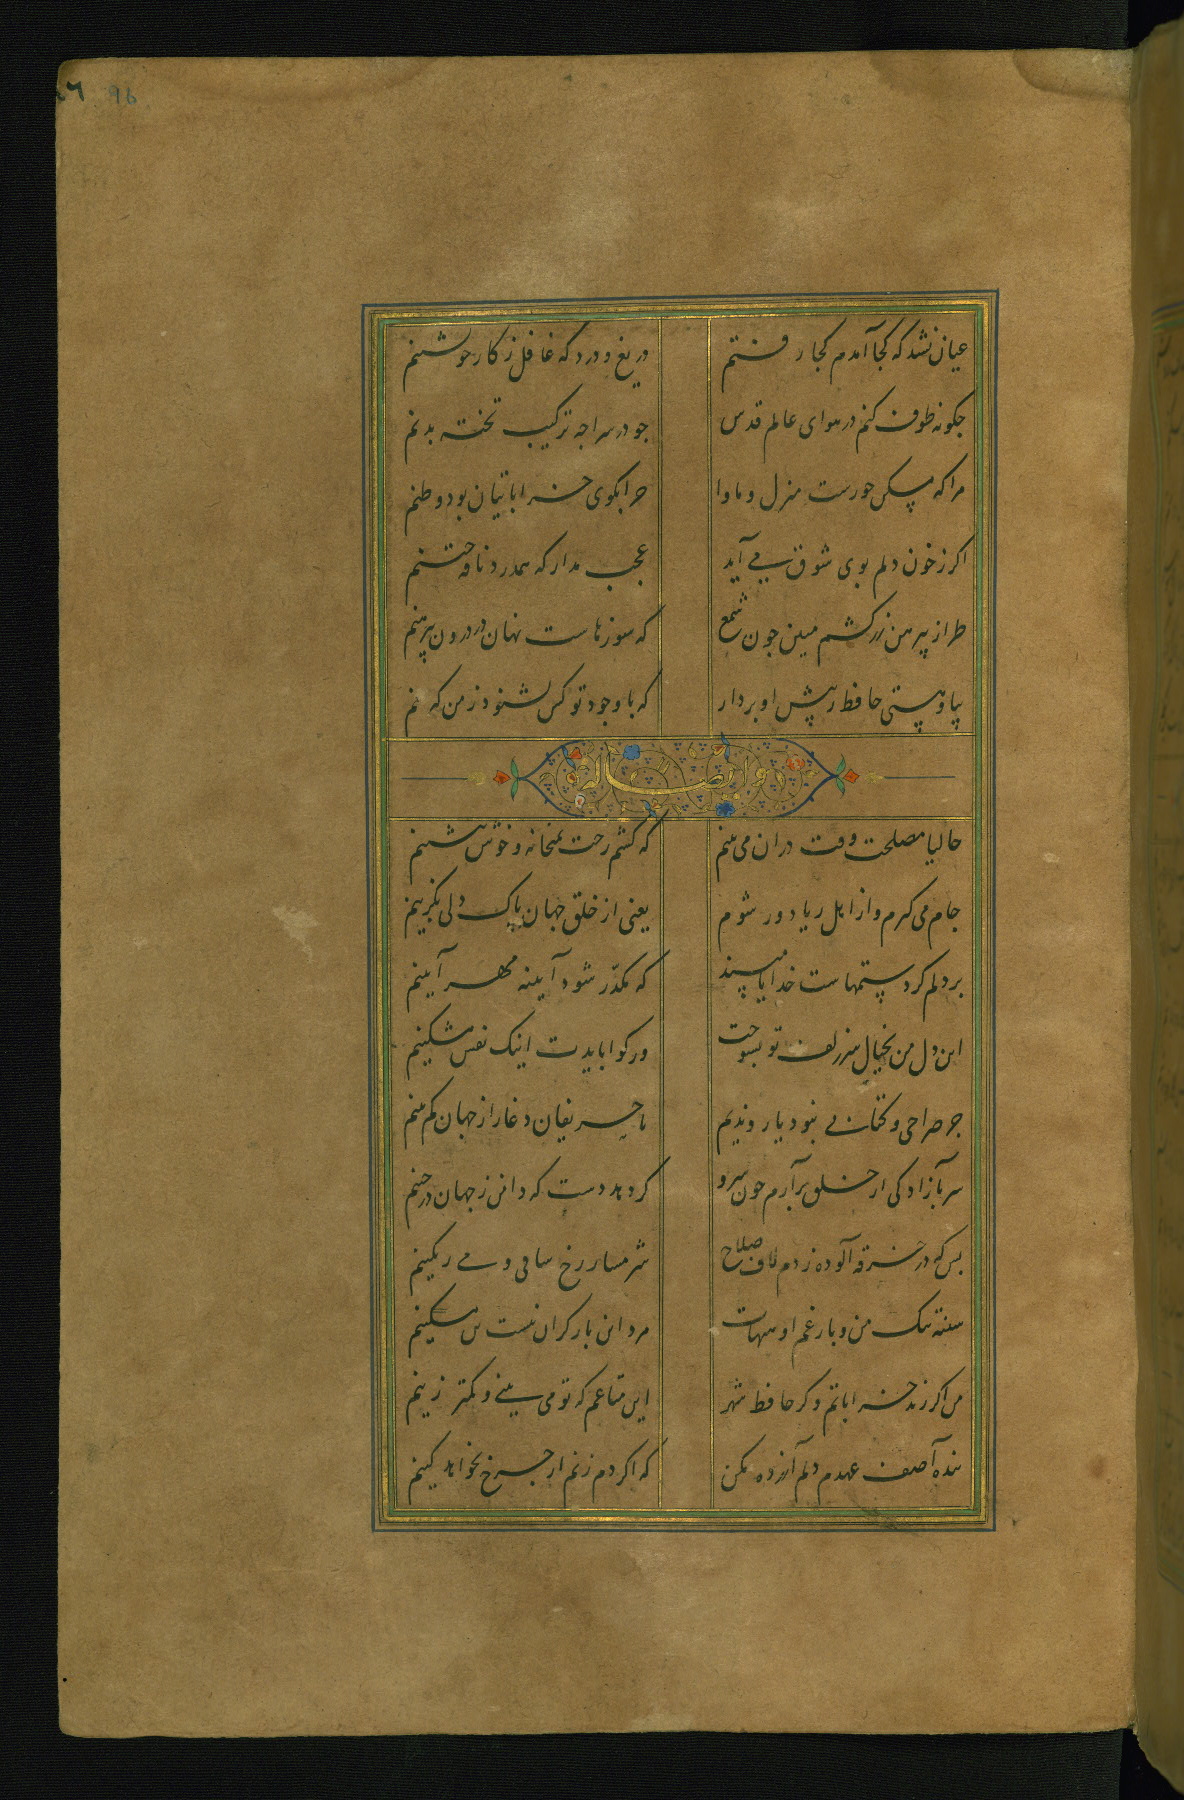 96
عیان نشد که کجا آمدم کجا رفتم
دریغ و درد که غافل ز کار خویشتنم
جکونه طوف کنم در هوای عالم قدس
جو در سراجه ترکیب تخته بدنم
مرا که مسکن حورست منزل و ماوا
جرا بکوی خراباتیان بود وطنم
اکر ز خون دلم بوی شوق می آید
عجب مدار که همدرد نافه ختنم
طراز پیرهن زرکشم مبین جون شمع
که سوزهاست نهان در درون پیرهنم
بیا و هستی حافظ ز پیش او بردار
که با وجود تو کس نشنود ز من که منم
و ایضا له
حالیا مصلحت وقت در ان می بینم
که کشم رخت بمیخانه و خوش بنشینم
جام می کیرم و از اهل ریا دور شوم
یعنی از خلق جهان پاک دلی بکزینم
بر دلم کرد ستمهاست خدایا مپسند
که مکدّر شود آیینه مهر آیینم
این دل من بخیال سر زلف تو بسوخت
ور کواه بایدت اینک نفس مشکینم
جز صراحی و کتابم نبود یار و ندیم
تا حریفان دغا را ز جهان کم بینم
سر بآزادکی از خلق برآرم جون سرو
کر دهد دست که دامن ز جهان درجینم
بس که در خرقه آلوده زدم لاف صلاح
شرمسار رخ ساقی و می رنکینم
سینه تنک من و بار غم او هیهات
مرد این بار کران نیست دل مسکینم
من اکر رند خراباتم وکر حافظ شهر
این متاعم که تو می بینی و کمتر زینم
بنده آصف عهدم دلم آزرده مکن
که اکر دم زنم از جرخ بخواهد کینم